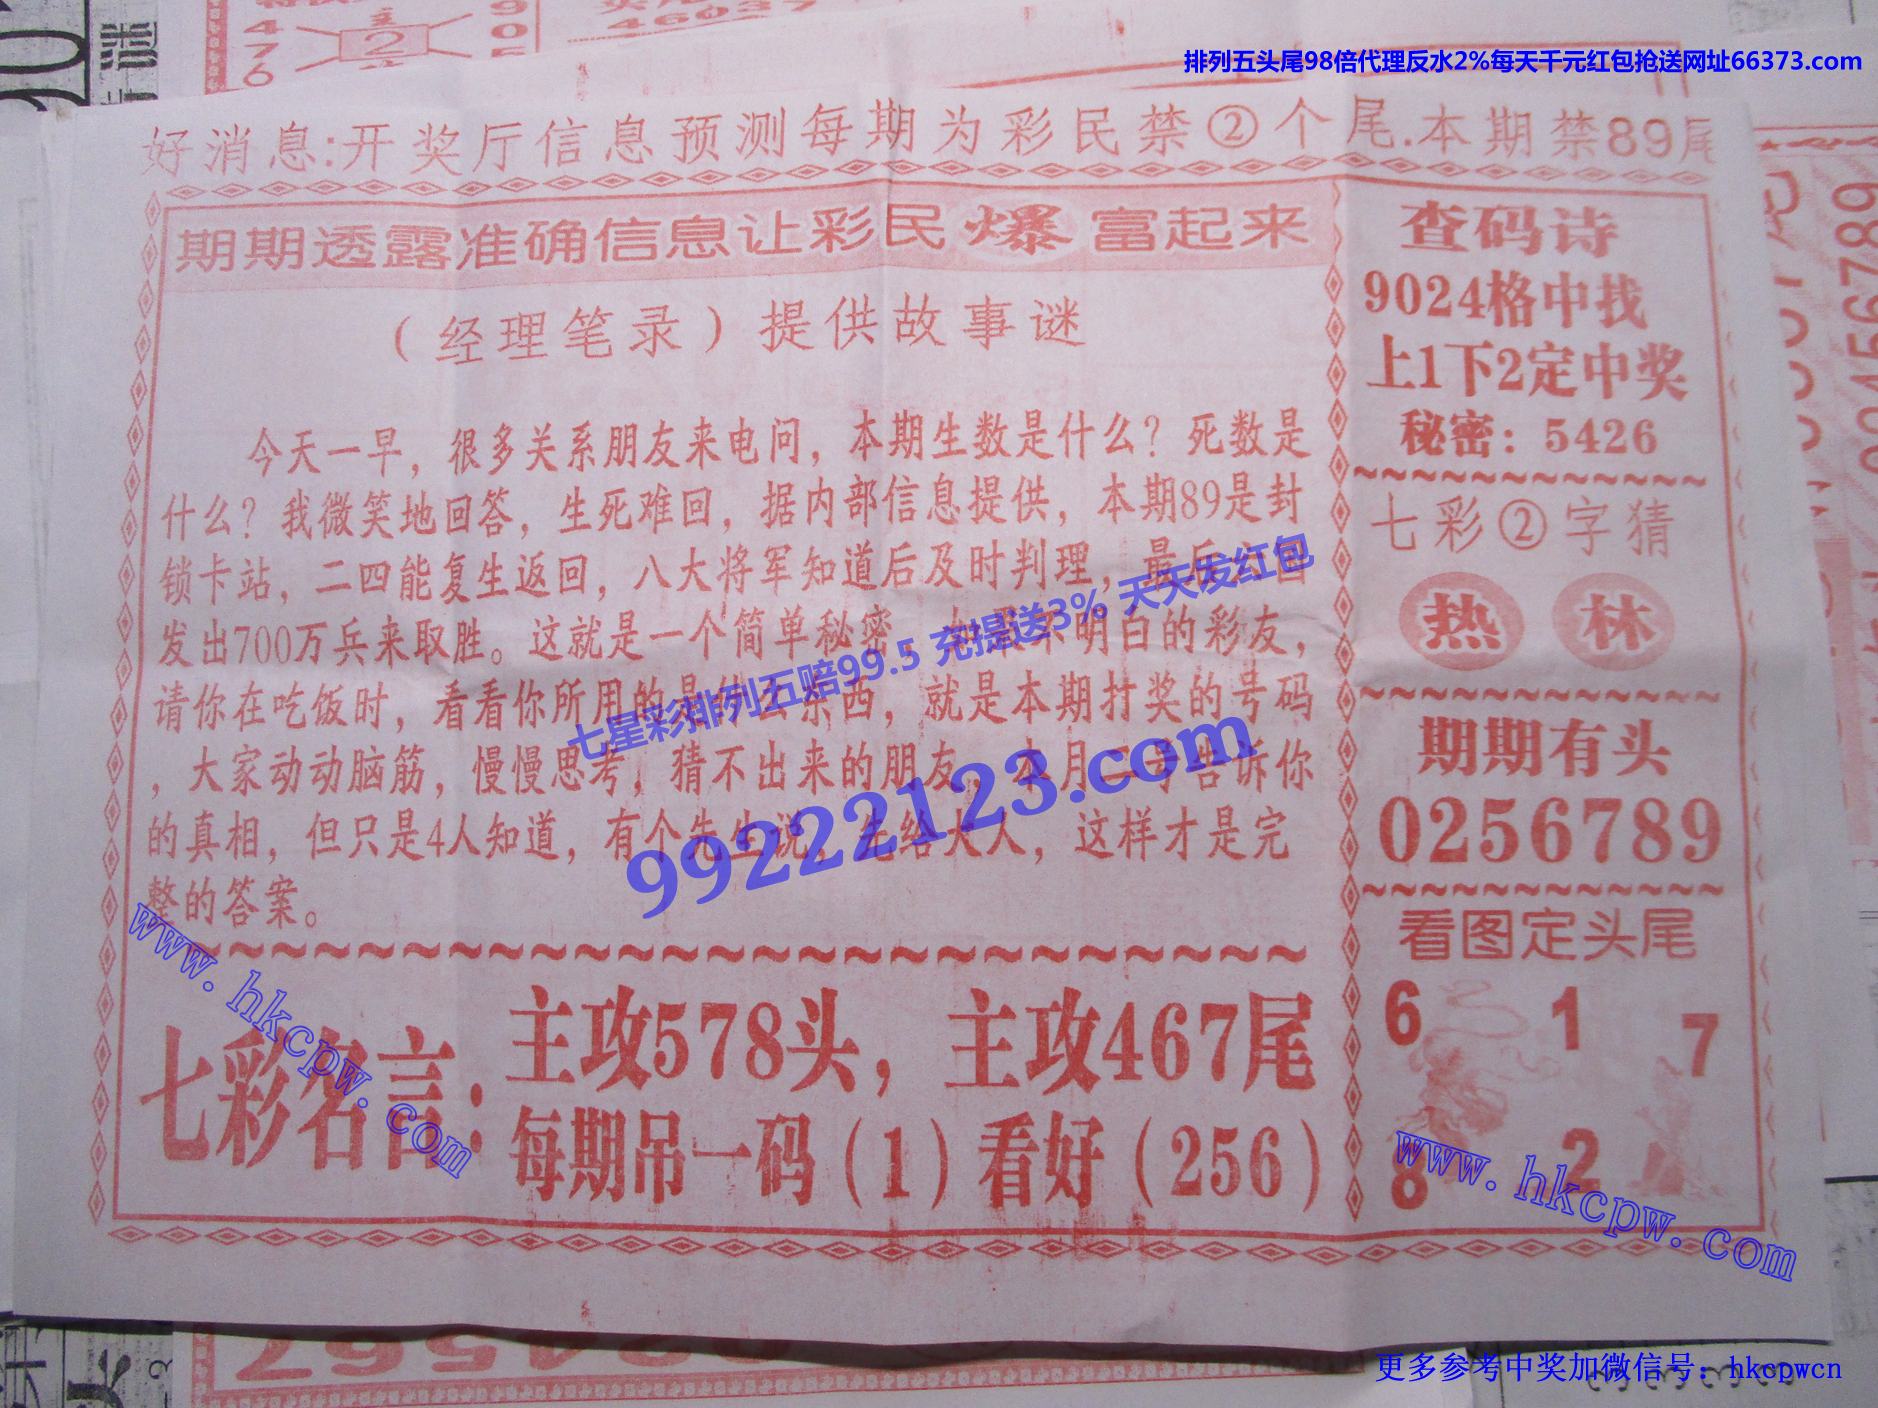 排列五头尾98倍代理反水2%每天千元红包抢送网址66373.com
好消息:开奖厅信息预测每期为彩民禁②个尾.本期禁89尾
期期透露准确信息让彩民爆富起来
（经理笔录）提供故事谜
今天一早，很多关系朋友来电问，本期生数是什么？死数是
什么？我微笑地回答，生死难回，据内部信息提供，本期89是封
锁卡站，二四能复生返回，八大将军知道后及时判理，最后
发出700万兵来取胜。这就是一个简单秘密，明白的彩友，
请你在吃饭时，看看你所用的是什么东西，就是本期打奖的号码
，大家动动脑筋，慢慢思考，猜不出来的朋友，本月二号告诉你
的真相，但只是4人知道，有个先生说，先给大人，这样才是完
整的答案。
七星彩排列五赔99.5 充提送3% 天天发红包
99222123.com
七彩名言:
主攻578头，主攻467尾
每期吊一码（1）看好（256）
查码诗
9024格中找
上1下2定中奖
秘密：5426
七彩②字猜
热 林
期期有头
0256789
看图定头尾
6 1 7
8 2
www.hkcpw.com
www.hkcpw.com
更多参考中奖加微信号：hkcpwcn